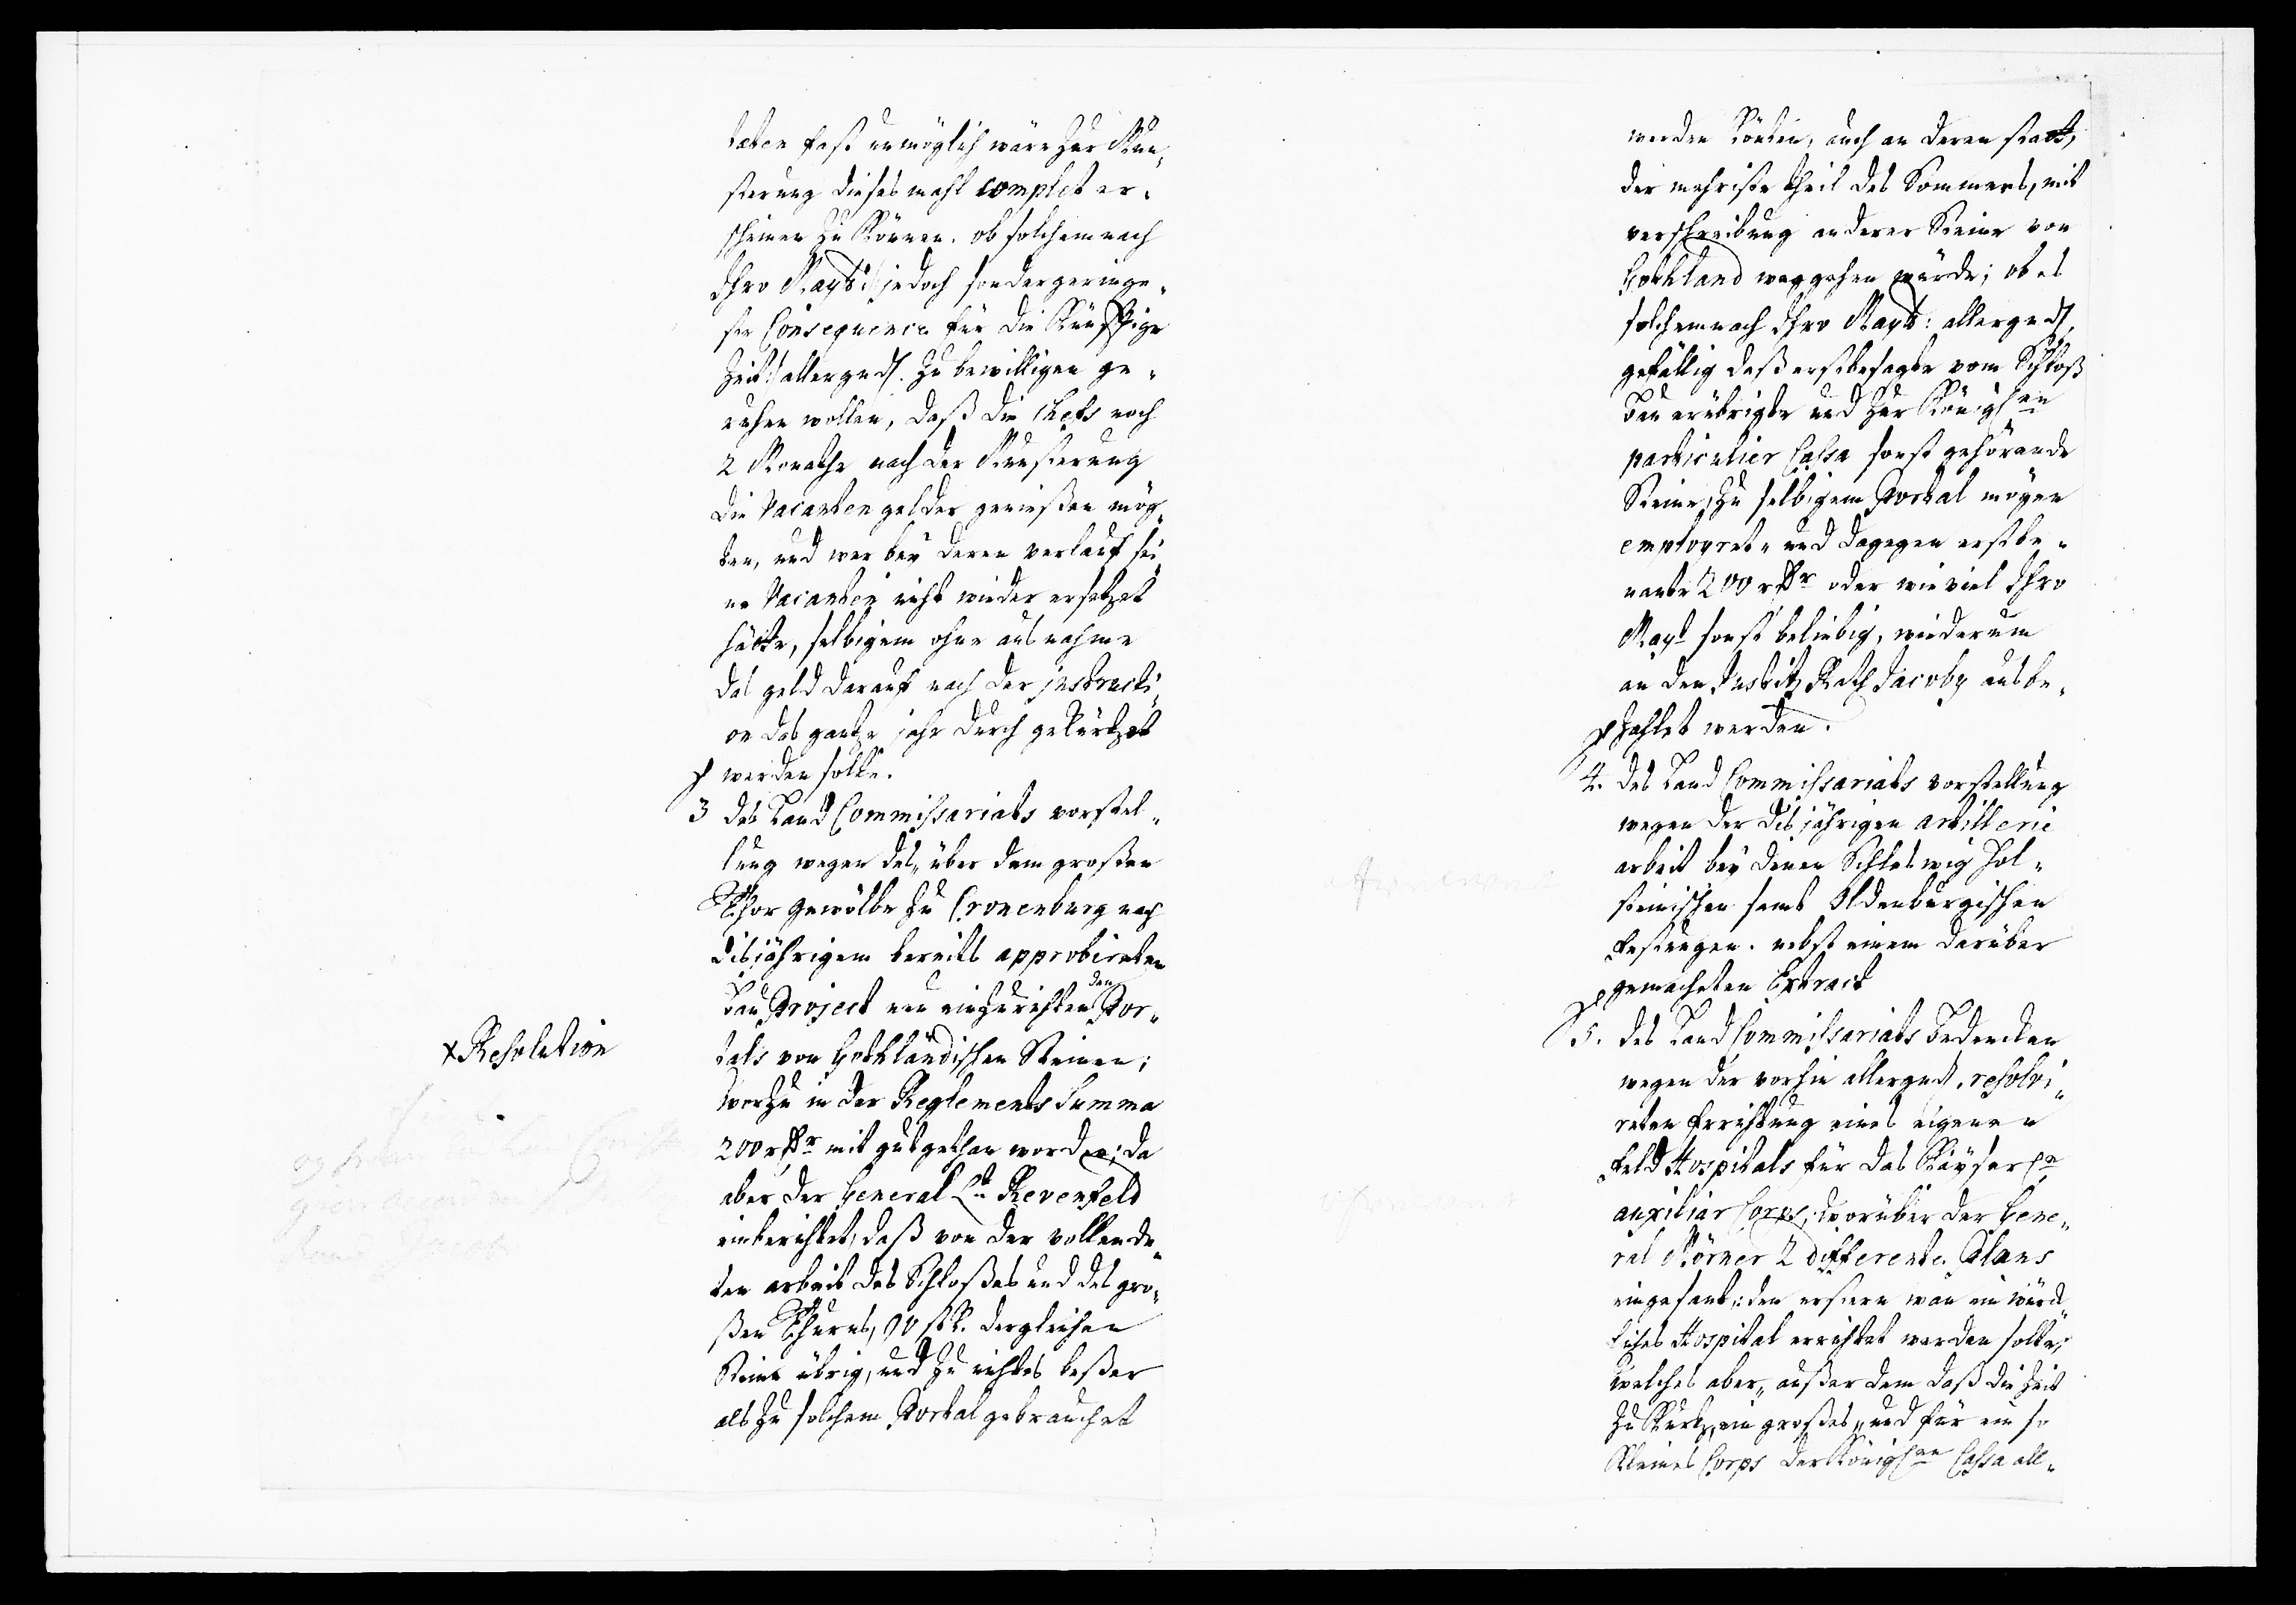 taten fast unmöglich wäre zur Mun¬
sterung dieses mahl complet er¬
scheinen zu können. ob solchemnach
Ihro Mayt: /: jedoch sonder geringe¬
ste Consequence für die künfftige
Zeit :/ allergndst. zu bewilligen ge¬
ruhen wollen, daß die Chefs noch
2 Monathe nach der Munsterung
die Vacanten gelder genießen mög¬
ten, und wer beÿ deren verlauf sei¬
ne Vacanten nicht wieder ersetzet
hätte, selbigem ohne ausnahme
das geld darauf nach der instructi¬
on das gantze jahr durch gekürtzet
werden solte.
3 des Land Commissariats vorstel¬
lung wegen des, über dem großen
Thor Gewölbe zu Cronenburg nach
disjährigem bereits approbireten
bau Project neu einzurichtenden Por¬
tals von Gothländischen Steinen;
Worzu in der Reglements Summa
200 rthr mit gut gethan worden; da
aber der General Lt: Revenfeld
einberichtet, daß von der vollende¬
ten arbeit des Schloßes und des gro¬
ßen Thurns, 90 stk. dergleichen
Steine übrig, und zu nichtes beßer
als zu solchem Portal gebrauchet
x Resolution
werden könten, auch an deren statt,
der mehriste theil des Sommers, mit
verschreibung anderer Steine von
Gothland weggehen würde; ob es
solchemnach Ihro Mayt: allergndst.
gefällig daß erstbesagte vom Schloß
bau erübrigte und zur Königlen
particulier Cassa sonst gehörende
Steine, zu selbigem Portal mögen
employret, und dagegen erstbe¬
nante 200 rthr oder wie viel Ihro
Mayt sonst beliebig, wiederum
an den Justitz Rath Jacoby ausbe¬
zahlet werden.
4. des Land Commissariats vorstellung
wegen der disjährigen artillerie
arbeit beÿ denen Schleswig Hol¬
steinischen samt Oldenburgischen
festungen. nebst einem darüber
gemacheten Extract
5. des Land Commissariats bedencken
wegen der vorhin allergndst. resolvi¬
reten Errichtung eines eigenen
feld Hospitals für das Kaÿserle
auxiliar Corps; worüber der Gene¬
ral Mörner 2 differente Plans
eingesant: den erstern wan ein würck¬
liches Hospital errichtet werden solte;
Welches aber, außer dem daß die Zeit
zu kurtz, ein großes, und für ein so
kleines Corps der Königlen Cassa all¬